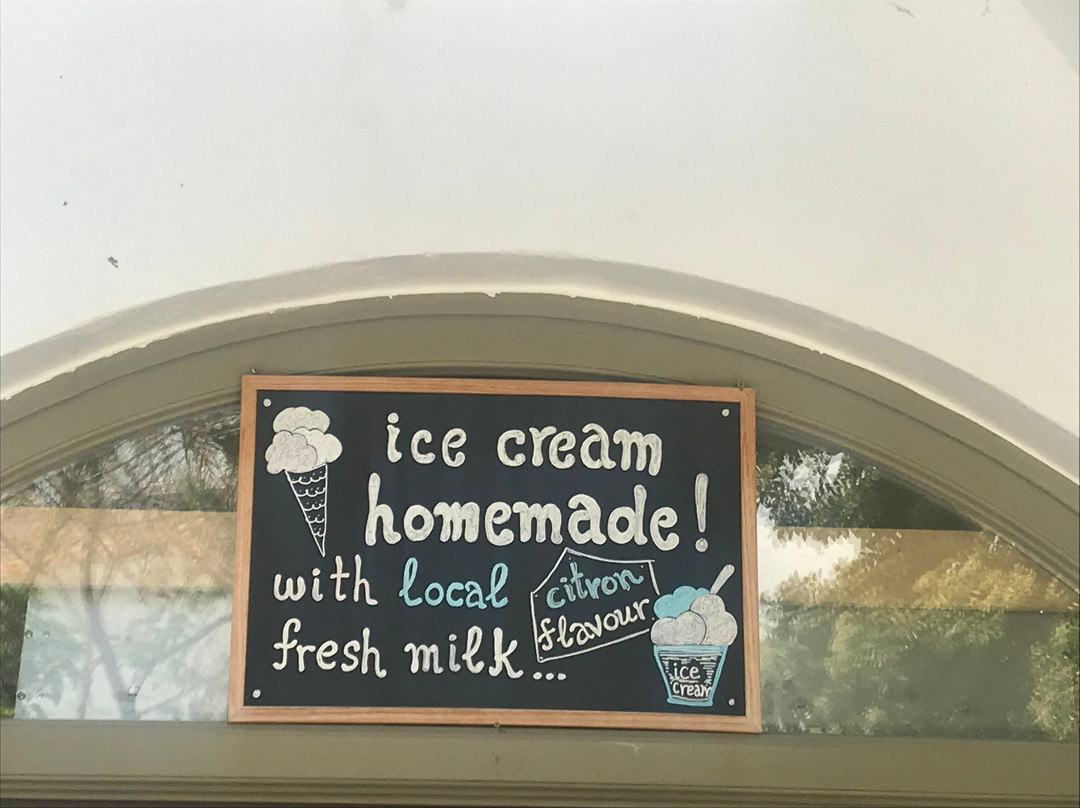 ice cream
homemade!
with local
fresh milk...
citron
flavour
ice
cream